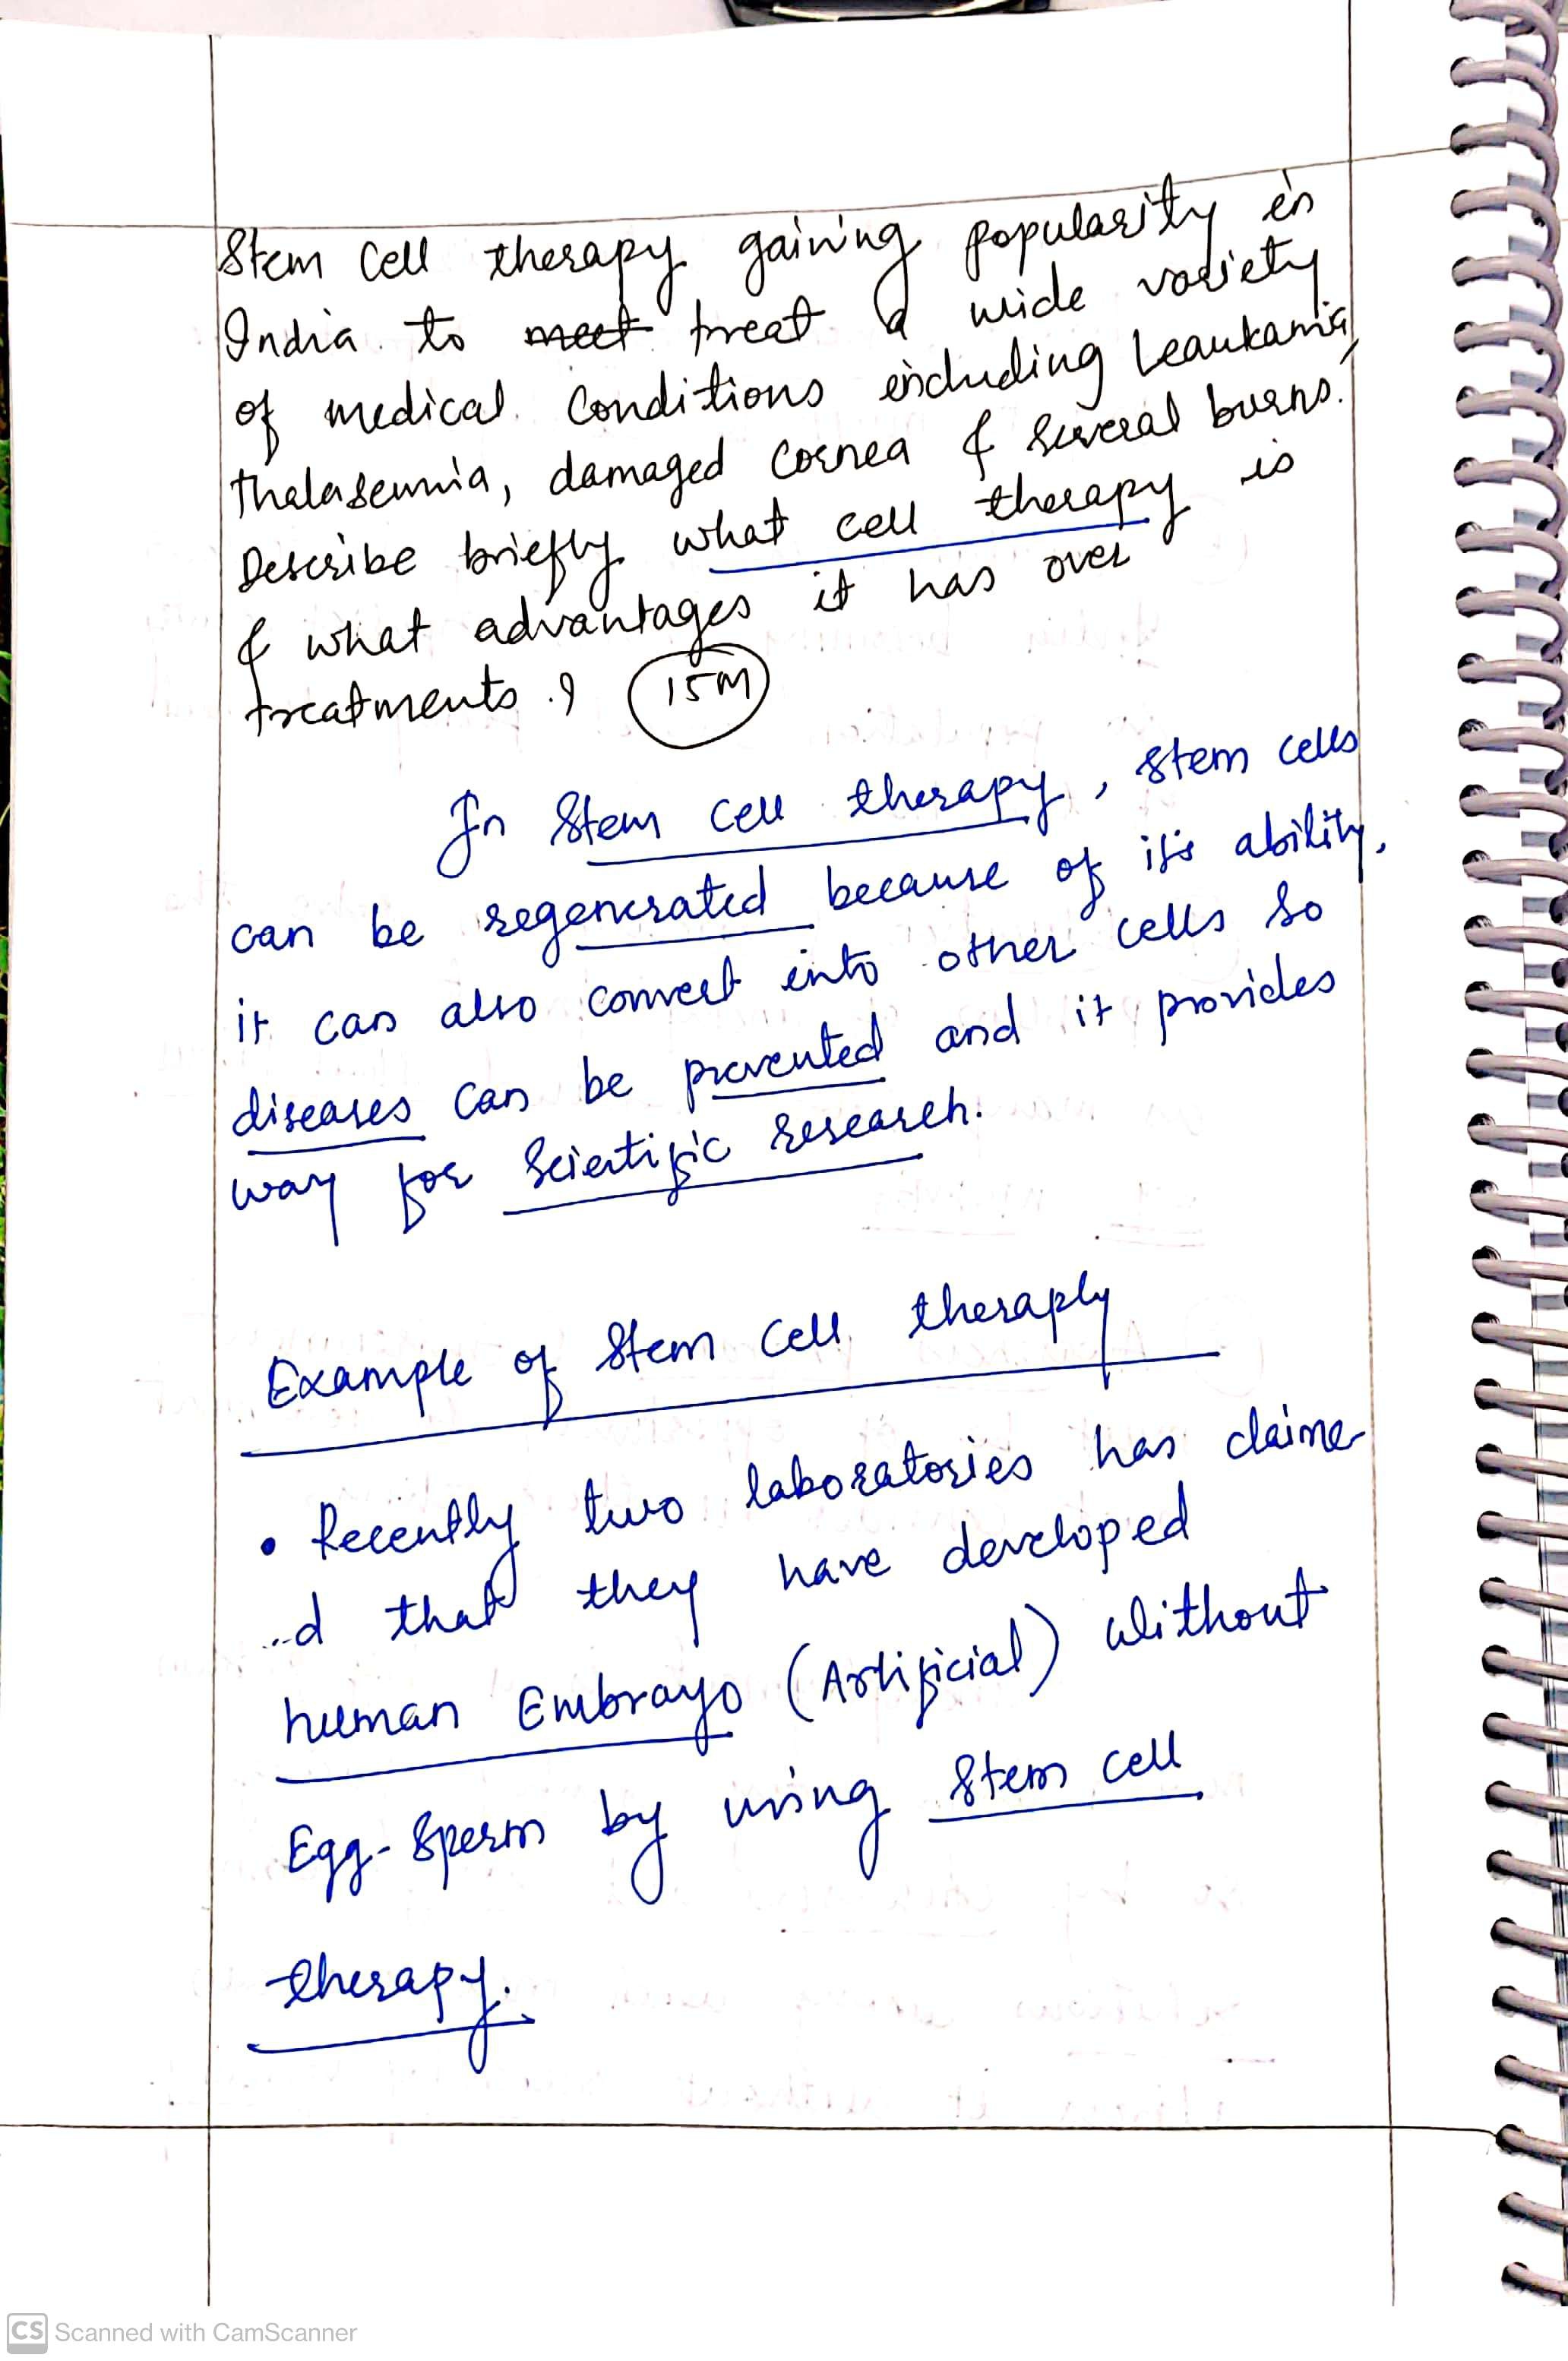 Stem Cell therapy gaining popularity in
India to meet treat a wide variety
of medical Conditions including Leaukamia,
thalasemia, damaged Cornea & several burns.
Describe briefly what cell therapy is
& what advantages it has over
treatments.? 15M
In Stem cell therapy, stem cells
can be regenerated because of it's ability,
it can also convert into other cells so
diseases can be prevented and it provides
way for Scientific research.
Example of Stem Cell theraply
• Recently two laboratories has claime
..d that they have developed
human Embrayo (Artificial) Without
Egg-Sperm by using Stem cell
therapy.
CS Scanned with CamScanner